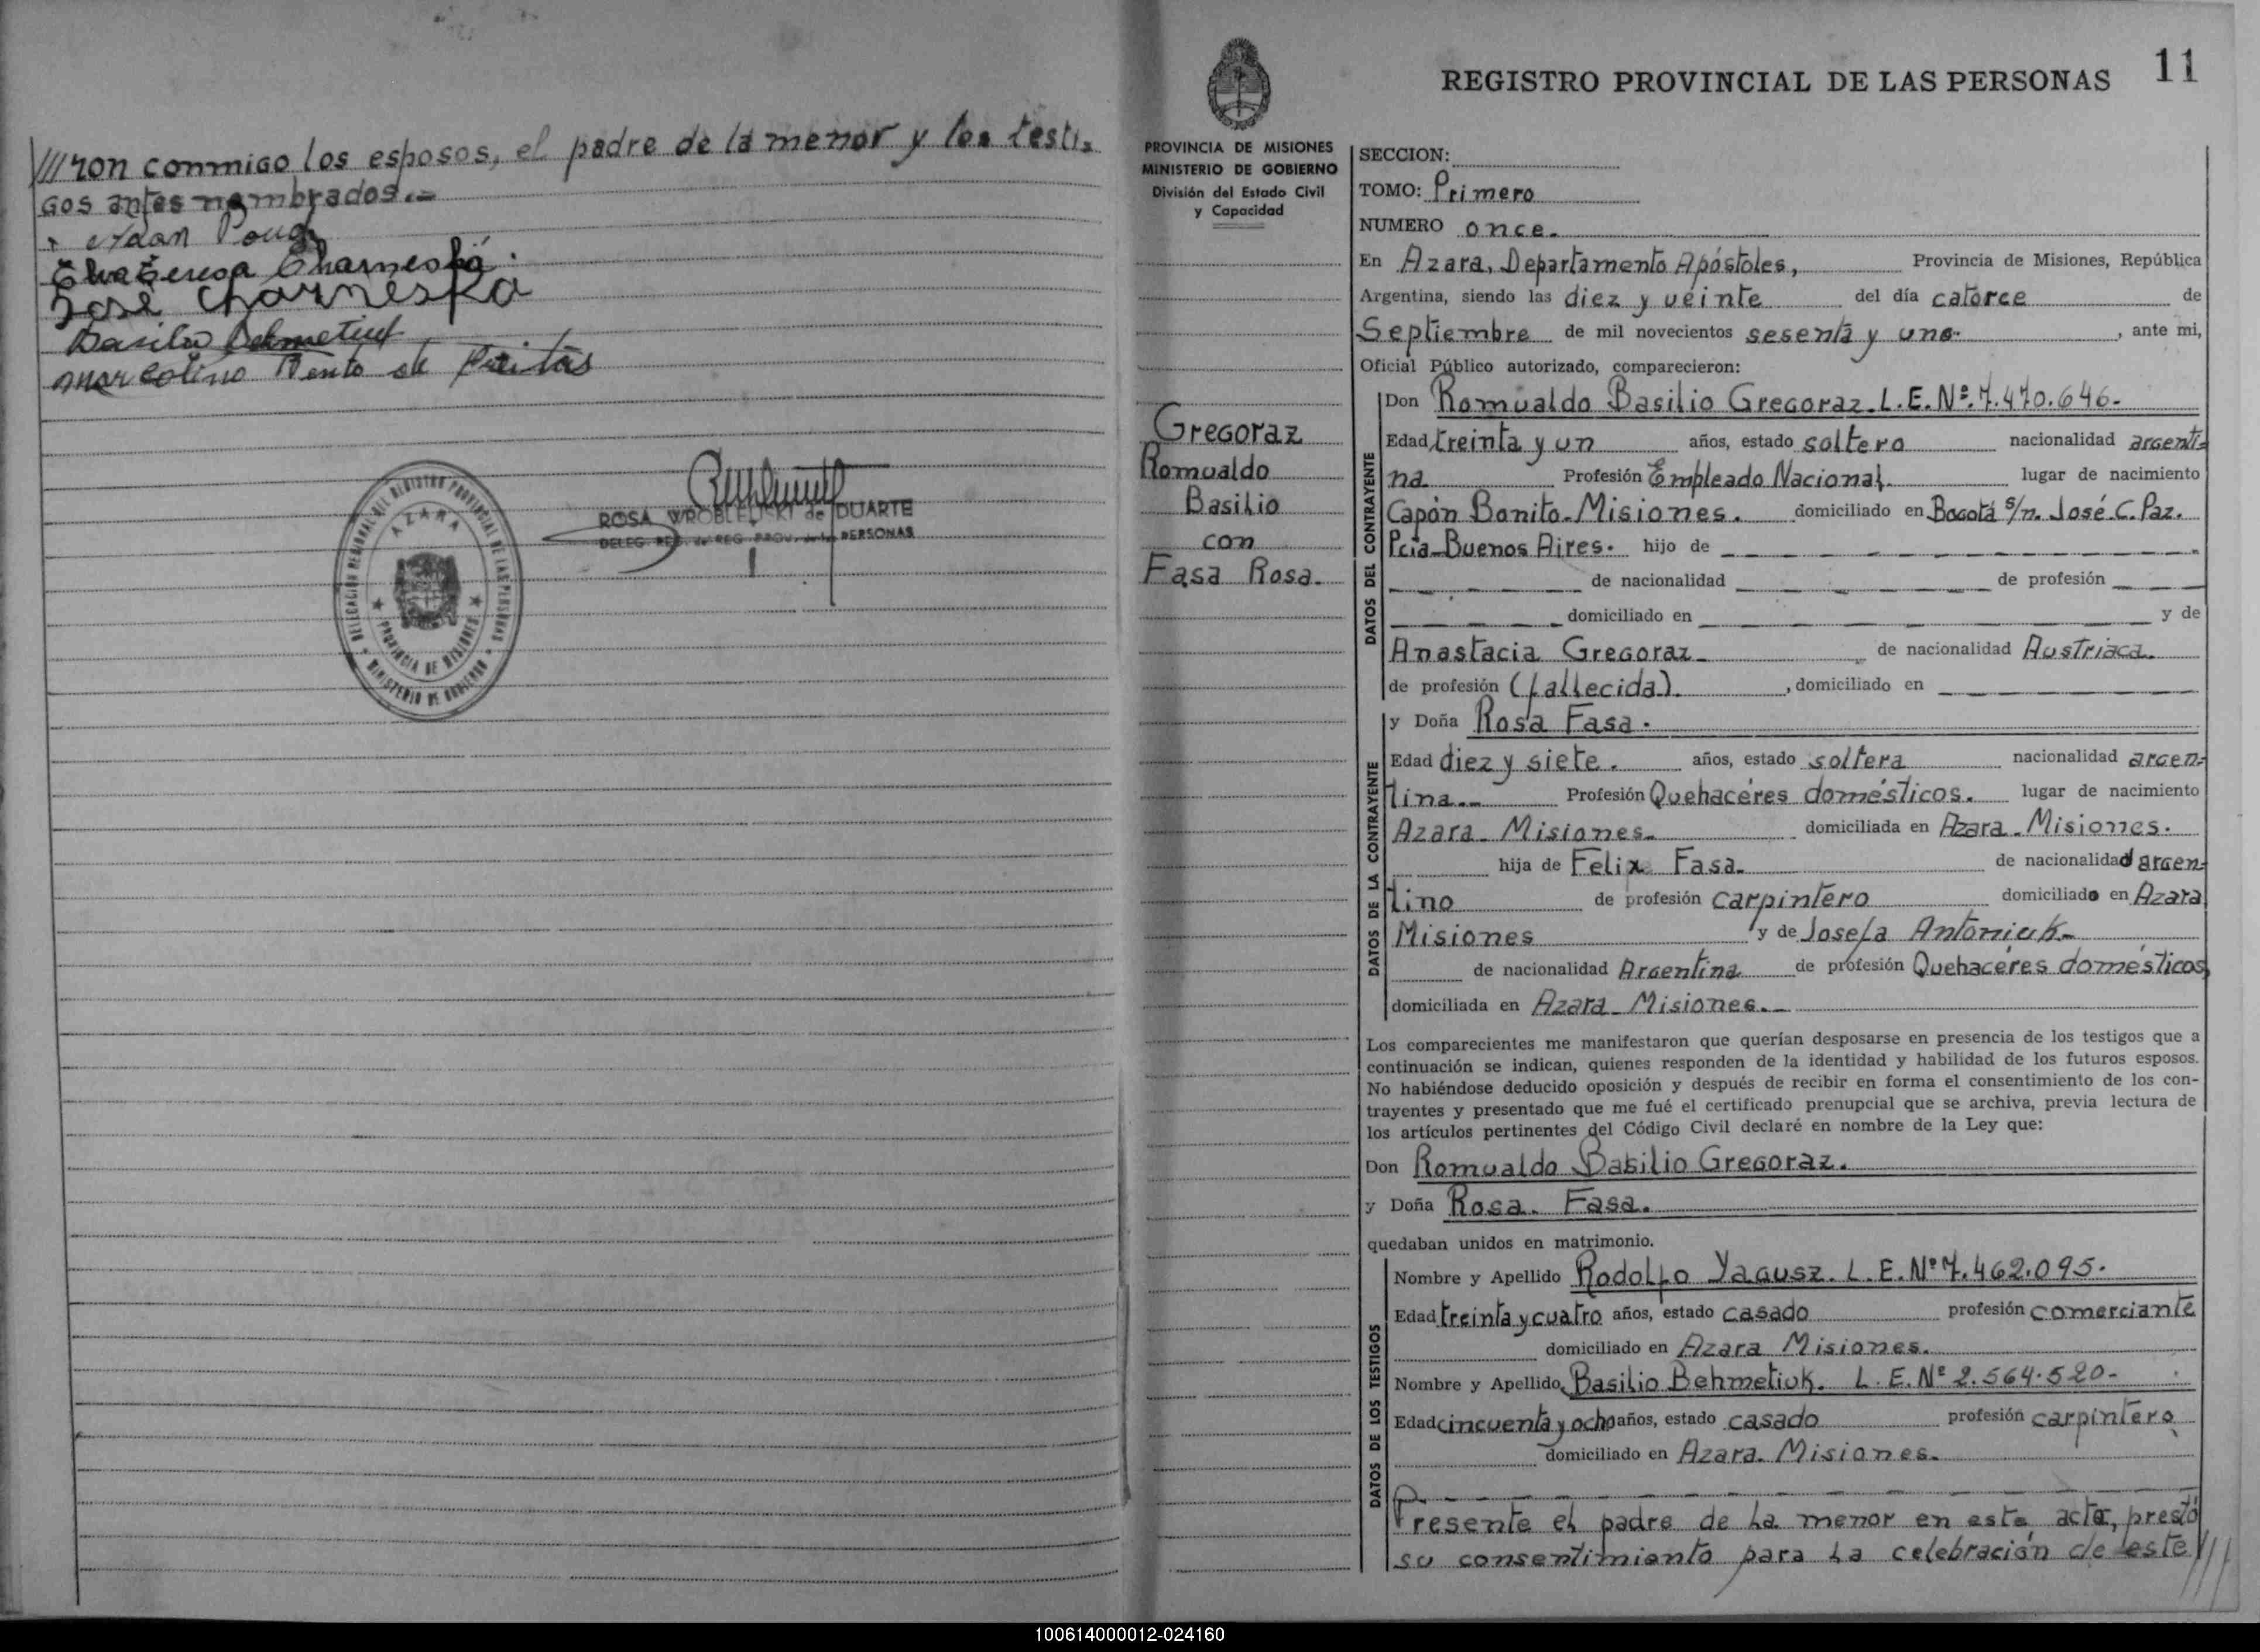 ///ron conmigo los esposos, el padre de la menor y los testi-
gos antes nombrados.-
Elva Teresa Charneska
José Charneska
Basilio Behmetiuk
Marcolino Bento de Freitas
ROSA WROBLEUSKI de DUARTE
DELEG. REG. de REG. PROV. de las PERSONAS
DELEGACION REGIONAL DEL REGISTRO PROVINCIAL DE LAS PERSONAS
AZARA
PROVINCIA DE MISIONES
MINISTERIO DE GOBIERNO
11
REGISTRO PROVINCIAL DE LAS PERSONAS
PROVINCIA DE MISIONES
MINISTERIO DE GOBIERNO
División del Estado Civil
y Capacidad
Gregoraz
Romualdo
Basilio
con
Fasa Rosa.
SECCION:
TOMO: Primero
NUMERO once.
En Azara, Departamento Apóstoles, Provincia de Misiones, República
Argentina, siendo las diez y veinte del día catorce de
Septiembre de mil novecientos sesenta y uno , ante mi,
Oficial Público autorizado, comparecieron:
DATOS DEL CONTRAYENTE
Don Romualdo Basilio Gregoraz. L.E.Nº. 7.470.646.
Edad treinta y un años, estado soltero nacionalidad argenti-
na. Profesión Empleado Nacional. lugar de nacimiento
Capón Bonito-Misiones. domiciliado en Bogotá s/n. José C. Paz.
Pcia-Buenos Aires. hijo de
de nacionalidad de profesión
domiciliado en y de
Anastacia Gregoraz de nacionalidad Austriaca.
de profesión (fallecida). , domiciliado en
DATOS DE LA CONTRAYENTE
y Doña Rosa Fasa.
Edad diez y siete. años, estado soltera nacionalidad argen-
tina.- Profesión Quehaceres domésticos. lugar de nacimiento
Azara-Misiones. domiciliada en Azara-Misiones.
hija de Felix Fasa. de nacionalidad argen-
tino de profesión carpintero domiciliado en Azara
Misiones y de Josefa Antoniuk-
de nacionalidad Argentina de profesión Quehaceres domésticos
domiciliada en Azara-Misiones.-
Los comparecientes me manifestaron que querían desposarse en presencia de los testigos que a
continuación se indican, quienes responden de la identidad y habilidad de los futuros esposos.
No habiéndose deducido oposición y después de recibir en forma el consentimiento de los con-
trayentes y presentado que me fué el certificado prenupcial que se archiva, previa lectura de
los artículos pertinentes del Código Civil declaré en nombre de la Ley que:
Don Romualdo Basilio Gregoraz.
y Doña Rosa Fasa.
quedaban unidos en matrimonio.
DATOS DE LOS TESTIGOS
Nombre y Apellido Rodolfo Yagusz. L.E.Nº 7.462.095.
Edad treinta y cuatro años, estado casado profesión comerciante
domiciliado en Azara Misiones.
Nombre y Apellido Basilio Behmetiuk. L.E.Nº 2.564.520-
Edad cincuenta y ocho años, estado casado profesión carpintero
domiciliado en Azara. Misiones.
Presente el padre de la menor en esta acta, prestó
su consentimiento para la celebración de este ///
100614000012-024160